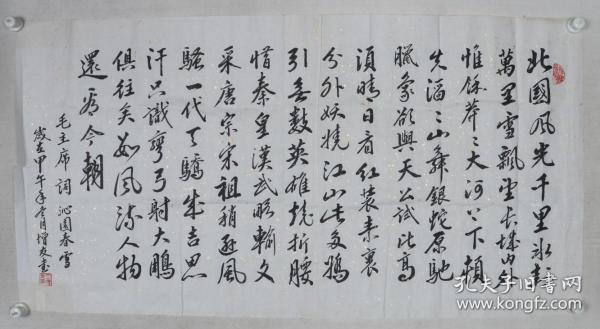 北國風光千里冰封
萬里雪飄望長城內外
惟餘莽〻大河上下頓
失滔〻山舞銀蛇原馳
臘象欲與天公試比高
須晴日看紅裝素裹
分外妖嬈江山此多嬌
引無數英雄競折腰
惜秦皇漢武略輸文
采唐宗宋祖稍遜風
騷一代天驕成吉思
汗只識彎弓射大鵰
俱往矣數風流人物
還看今朝
毛主席詞沁園春雪
歲在甲午年 月增友書
孔夫子旧书网
www.kongfz.com